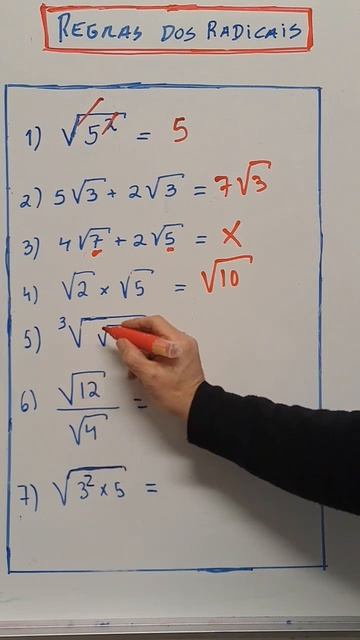 REGRAS DOS RADICAIS
1) √5² = 5
2) 5√3 + 2√3 = 7√3
3) 4√7 + 2√5 = X
4) √2 × √5 = √10
5) ³√√
6) √12/√4 =
7) √3² × 5 =